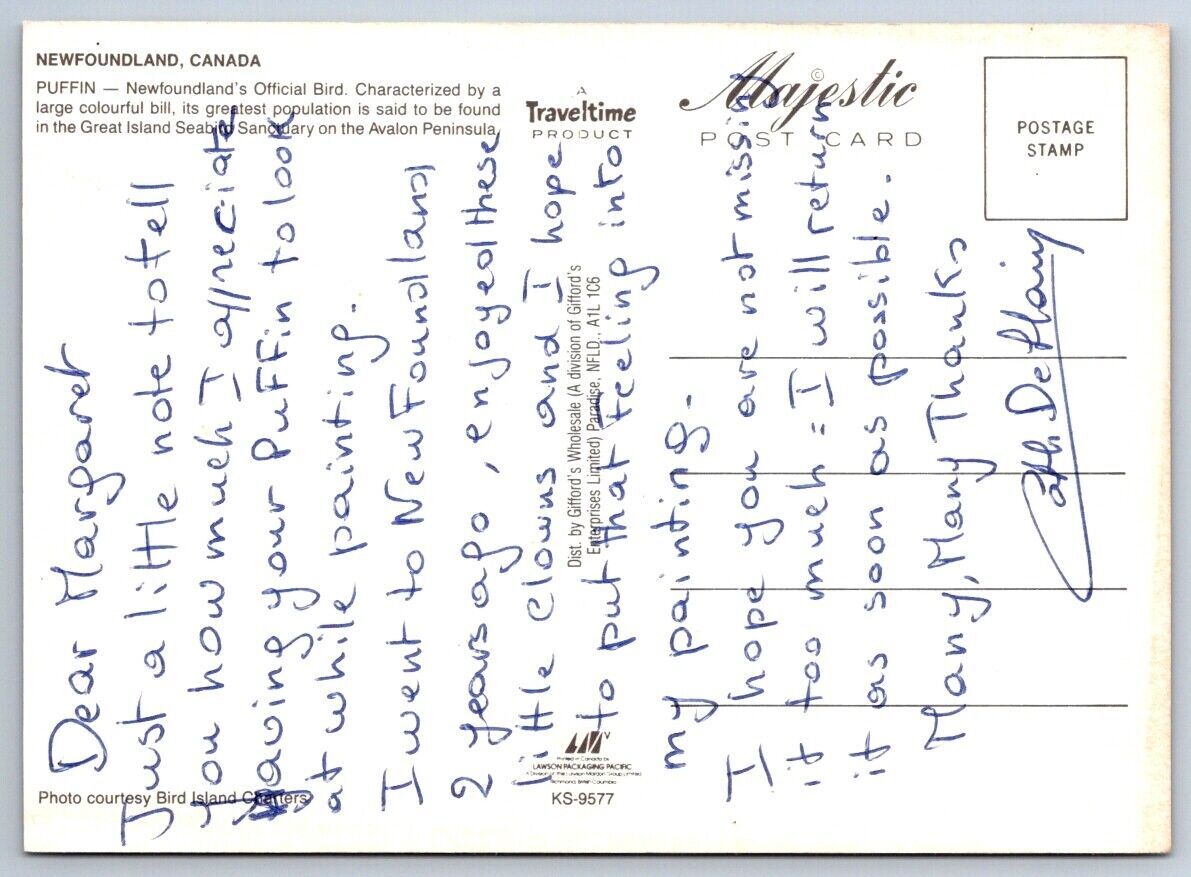 NEWFOUNDLAND, CANADA
PUFFIN — Newfoundland's Official Bird. Characterized by a
large colourful bill, its greatest population is said to be found
in the Great Island Seabird Sanctuary on the Avalon Peninsula.
A
Traveltime
PRODUCT
Majestic
©
POST CARD
POSTAGE
STAMP
Dear Margaret
Just a little note to tell
You how much I appreciate
having your PuFFin to look
at while painting.
I went to NewFoundland
2 years ago, enjoyed these
little clowns and I hope
to put that feeling into
my painting.
I hope you are not missing
it too much = I will return
it as soon as possible.
Many, Many Thanks
Dist. by Gifford's Wholesale (A division of Gifford's
Enterprises Limited) Paradise, NFLD., A1L 1C6
Printed in Canada by
LAWSON PACKAGING PACIFIC
A Division of the Lawson Mardon Group Limited
Richmond, British Columbia
Photo courtesy Bird Island Charters
KS-9577